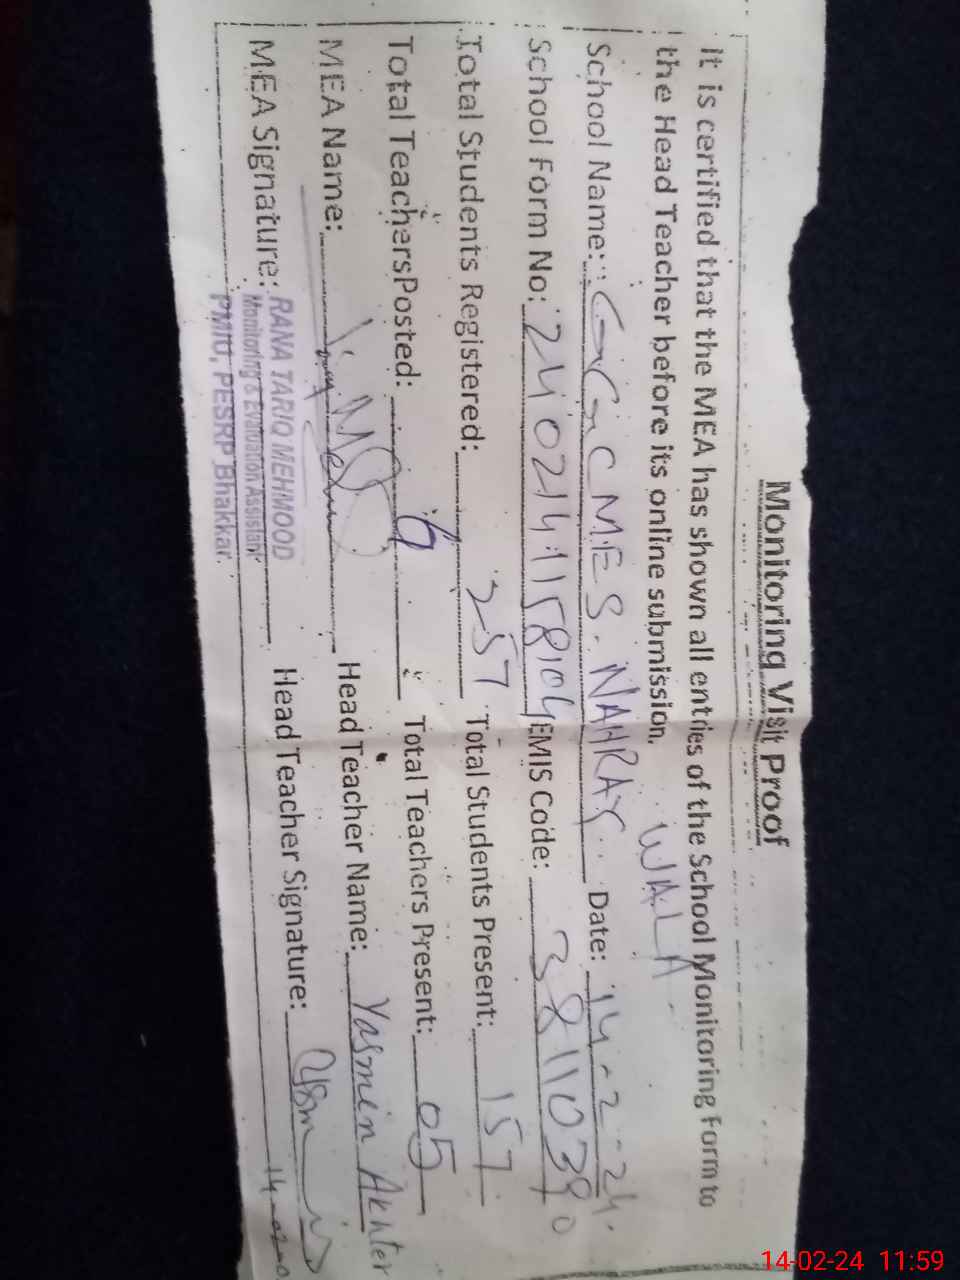 Monitoring Visit Proof
It is certified that the MEA has shown all entries of the School Monitoring Form to
the Head Teacher before its online submission.
WALA.
School Name: GGCMES. NAHRAY Date: 14-2-24.
School Form No: EMIS Code:
Total Students Registered: 257 Total Students Present: 157
Total Teachers Posted: 6 Total Teachers Present: 05
MEA Name: Head Teacher Name: Yasmin Akhter
MEA Signature: Head Teacher Signature:
RANA TARIQ MEHMOOD
Monitoring & Evaluation Assistant
PMIU, PESRP Bhakkar.
14-02-24 11:59